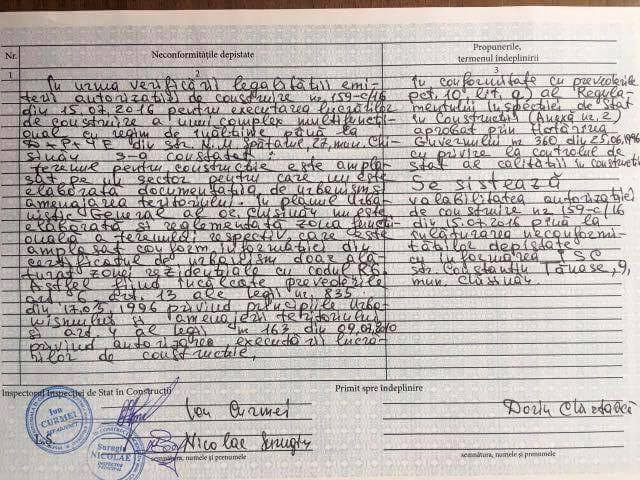 Nr.
Neconformitățile depistate
Propunerile,
termenul îndeplinirii
1
2
3
În urma verificării legalității emi-
terii autorizației de construire nr 159-c/16
din 15.07.2016 pentru executarea lucrărilor
de construire a unui complex multifuncți-
onal cu regim de înălțime până la
+P+4E din str. N.M Spătarul, 27, mun. Chi-
șinău s-a constatat:
terenul pentru construcție este ampla-
sat pe un sector pentru care nu este
elaborată documentația de urbanism și
amenajarea teritoriului. În planul Urba-
nistic General al or. Chișinău nu este
elaborată și reglementată zona funcți-
onală a terenului respectiv, care este
amplasat conform informației din
certificatul de urbanism doar ală-
turat zonei rezidențiale cu codul R6.
Astfel fiind încălcate prevederile
art. 6 art. 13 ale legii nr. 835
din 17.05.1996 privind principiile urba-
nismului și amenajării teritoriului
și art. 4 al legii nr 163 din 09.07.2010
privind autorizarea executării lucră-
rilor de construcție.
În conformitate cu prevederile
pct. 10 lit. g) al Regula-
mentului Inspecției de Stat
în Construcții (Anexa nr. 2)
aprobat prin Hotărîrea
Guvernului nr 360 din 25.06.1996
cu privire la controlul de
stat al calității în construcții
Se sistează
valabilitatea autorizației
de construire nr 159-c/16
din 15.07.2016 până la
înlăturarea neconformi-
tăților depistate
cu informarea ISC
str. Constantin Tănase, 9,
mun. Chișinău.
Inspectorul Inspecției de Stat în Construcții
Primit spre îndeplinire
Ion
CURMEI
Ion Curmei
Dorin
L.Ș.
Surugiu
NICOLAE
Nicolae Surugiu
semnătura, numele și prenumele
semnătura, numele și prenumele